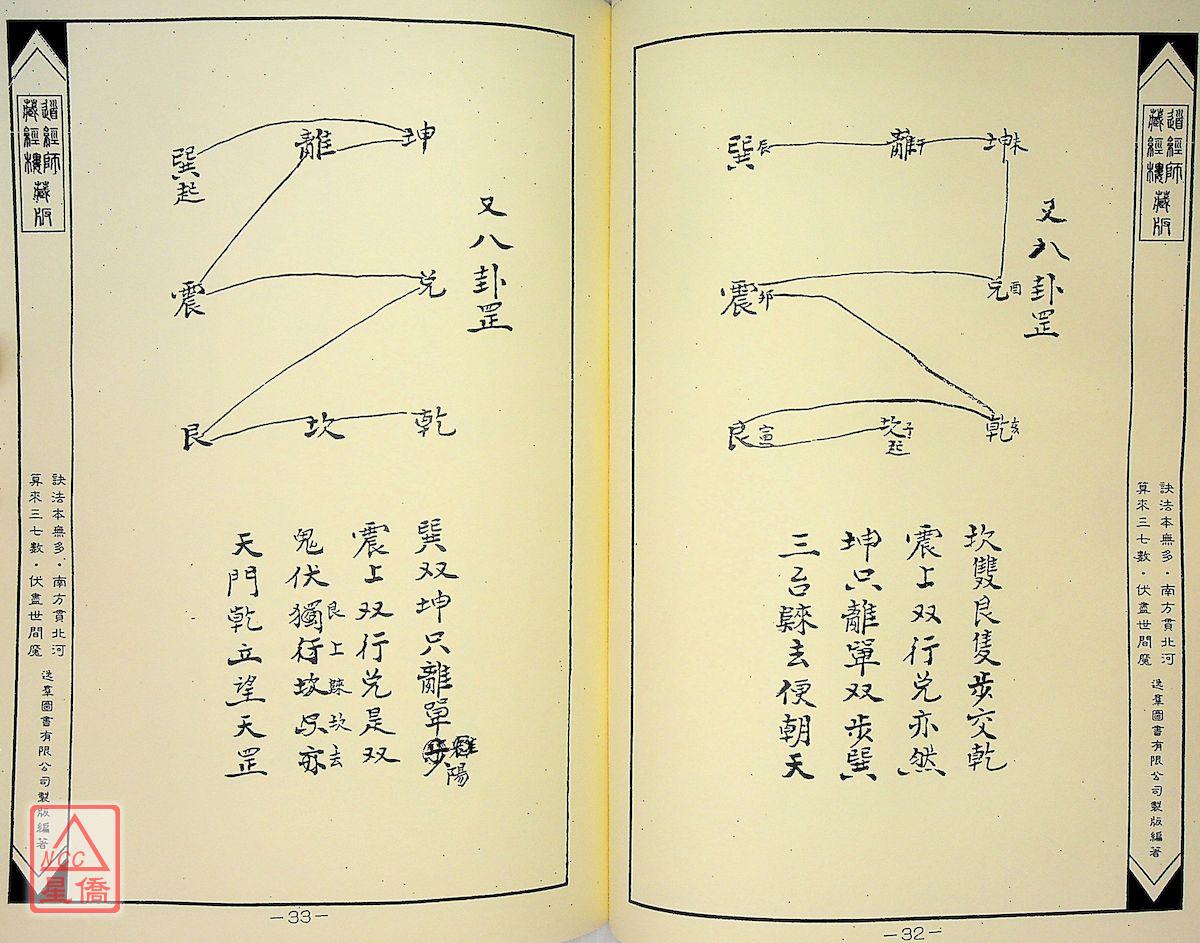 道經師
藏經樓
藏版
訣法本無多・南方貫北河
算來三七數・伏盡世間魔
逸羣圖書有限公司製版編著
又八卦罡
坤未
離午
巽辰
兌酉
震卯
乾亥
坎子起
艮寅
坎雙艮隻步交乾
震上双行兌亦然
坤只離單双步巽
三台躁去便朝天
-32-
又八卦罡
坤
離
巽起
兌
震
乾
坎
艮
巽双坤只離單
離陽
震上双行兌是双
艮上躁坎去
鬼伏獨行坎
天門乾立望天罡
道經師
藏經樓
藏版
訣法本無多・南方貫北河
算來三七數・伏盡世間魔
逸羣圖書有限公司製版編著
-33-
NCC
星僑